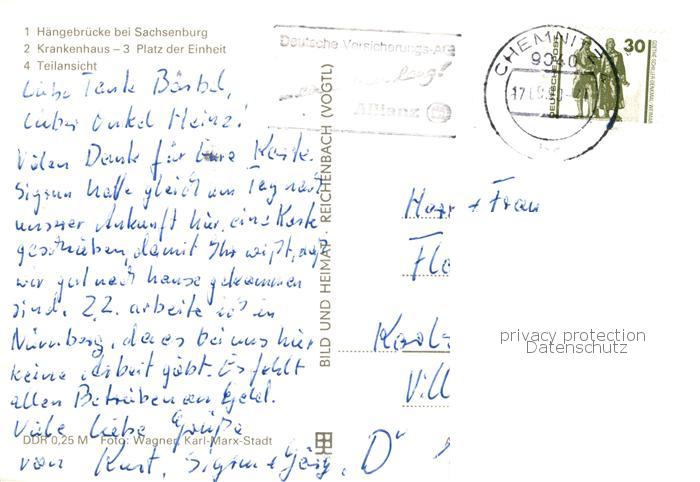 1 Hängebrücke bei Sachsenburg
2 Krankenhaus – 3 Platz der Einheit
4 Teilansicht
Liebe Tante Bärbel,
Lieber Onkel Heinz!
Vielen Dank für Eure Karte.
Sigrun hatte gleich am Tag nach
unserer Ankunft hier, eine Karte
geschrieben, damit Ihr wißt, daß
wir gut nach hause gekommen
sind. Z.Z. arbeite ich in
Nürnberg, da es bei uns hier
keine Arbeit gibt. Es fehlt
allen Betrieben an Geld.
Viele liebe Grüße
von Kurt, Sigrun +
DDR 0,25 M Foto: Wagner, Karl-Marx-Stadt
BILD UND HEIMAT · REICHENBACH (VOGTL)
Deutsche Versicherungs-AG
Allianz
CHEMNITZ
9040
DEUTSCHE POST
30
GOETHE-SCHILLER-DENKMAL, WEIMAR
Herr + Frau
Karls
Vill
privacy protection
Datenschutz